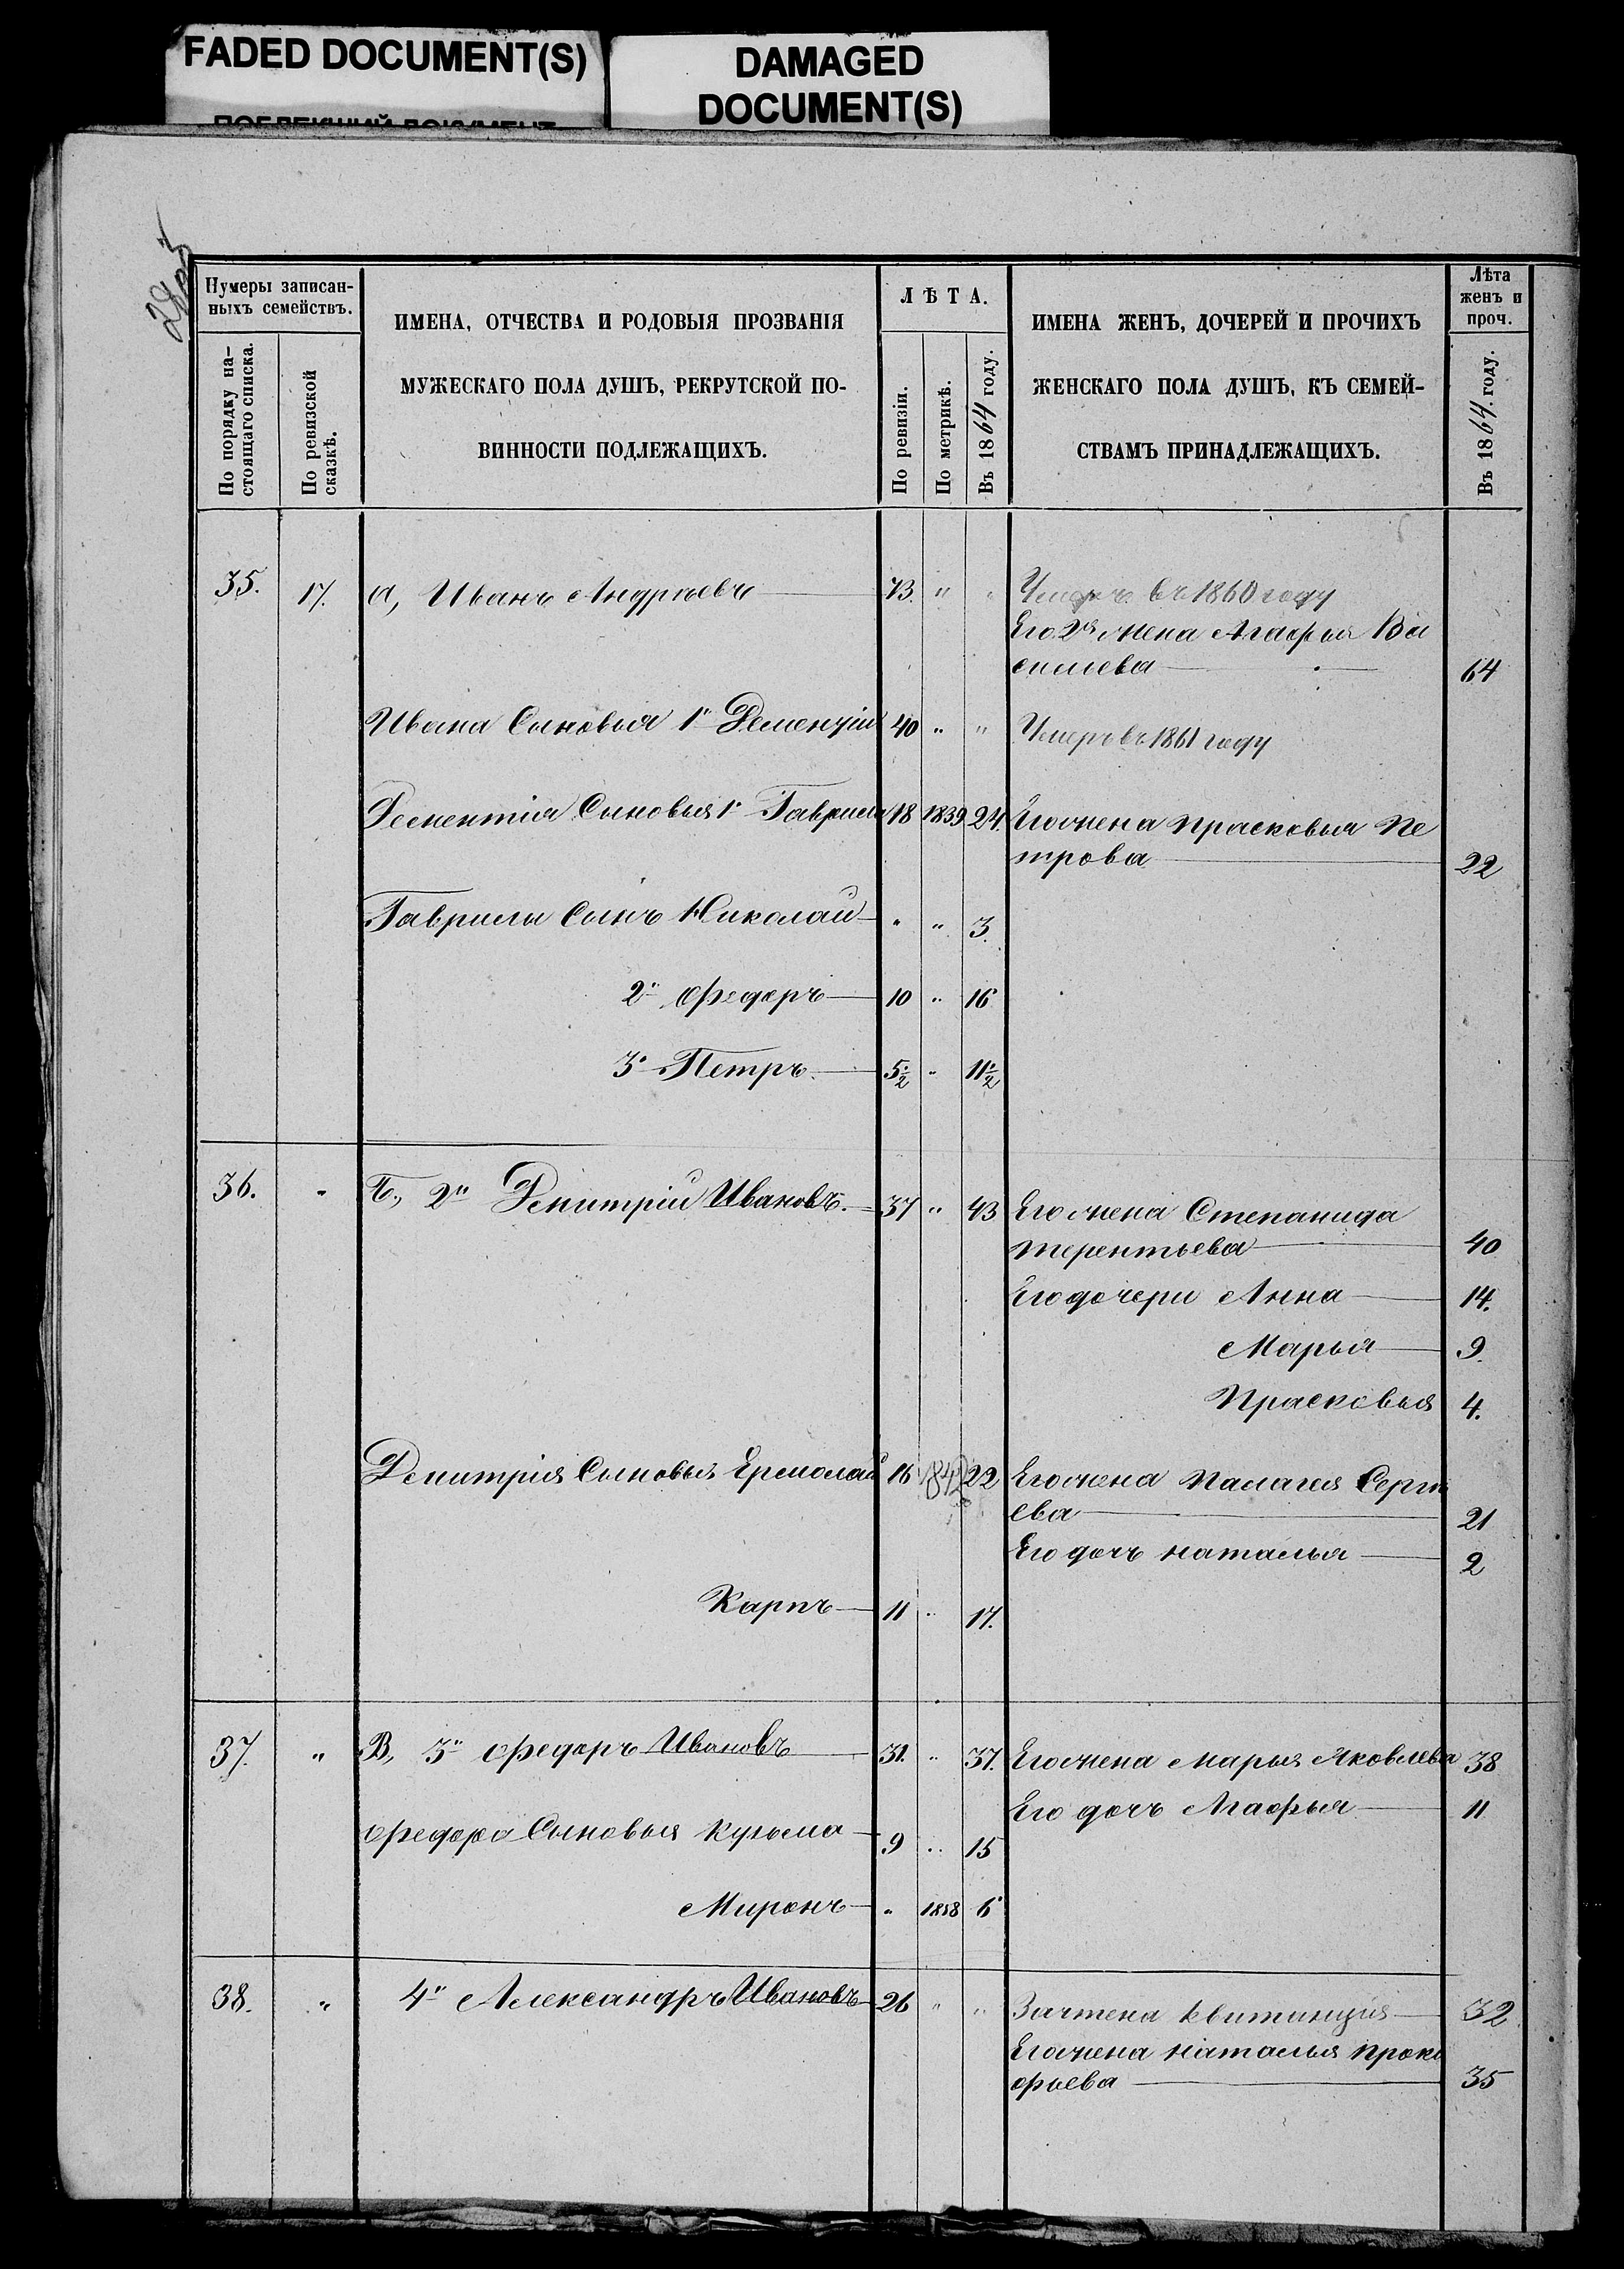 FADED DOCUMENT(S)
DAMAGED
DOCUMENT(S)
Нумеры записан-
ныхъ семействъ.
По порядку на-
стоящаго списка.
По ревизской
сказкѣ.
ИМЕНА, ОТЧЕСТВА И РОДОВЫЯ ПРОЗВАНІЯ
МУЖЕСКАГО ПОЛА ДУШЪ, РЕКРУТСКОЙ ПО-
ВИННОСТИ ПОДЛЕЖАЩИХЪ.
ЛѢТА.
По ревизіи.
По метрикѣ.
Въ 1864 году.
ИМЕНА ЖЕНЪ, ДОЧЕРЕЙ И ПРОЧИХЪ
ЖЕНСКАГО ПОЛА ДУШЪ, КЪ СЕМЕЙ-
СТВАМЪ ПРИНАДЛЕЖАЩИХЪ.
Лѣта
женъ и
проч.
Въ 1864. году.
35. 17. а, Иванъ Андреевъ 73. " " Умеръ въ 1860 году
Его 2я жена Агафья Ва
силиева 64
Ивана Сыновья 1й Дементій 40 " " Умеръ въ 1861 году
Дементія Сыновья 1й Гаврила 18 1839 24. Его жена Прасковья Пе
трова 22
Гаврилы Сынъ Николай " " 3.
2й Федоръ 10 " 16
3й Петръ. 5½ " 11½
36. " Б., 2й Дмитрій Ивановъ. 37 " 43 Его жена Степанида
Терентьева 40
Его дочери Анна 14.
Марья 9.
Прасковья 4.
Дмитрия Сыновья Ермолай 16 1842 22 Его жена Палагея Серге
ева 21
Его дочь Наталья 2
Карпъ 11 " 17.
37. " В, 3й Федоръ Ивановъ 31. " 37. Его жена Марья Яковлева 38
Его дочь Агафья 11
Федора Сыновья Кузьма 9 " 15
Миронъ " 1858 6
38. " 4й Александръ Ивановъ 26 " " Зачтена квитанція 32
Его жена Наталья Проко
фьева 35